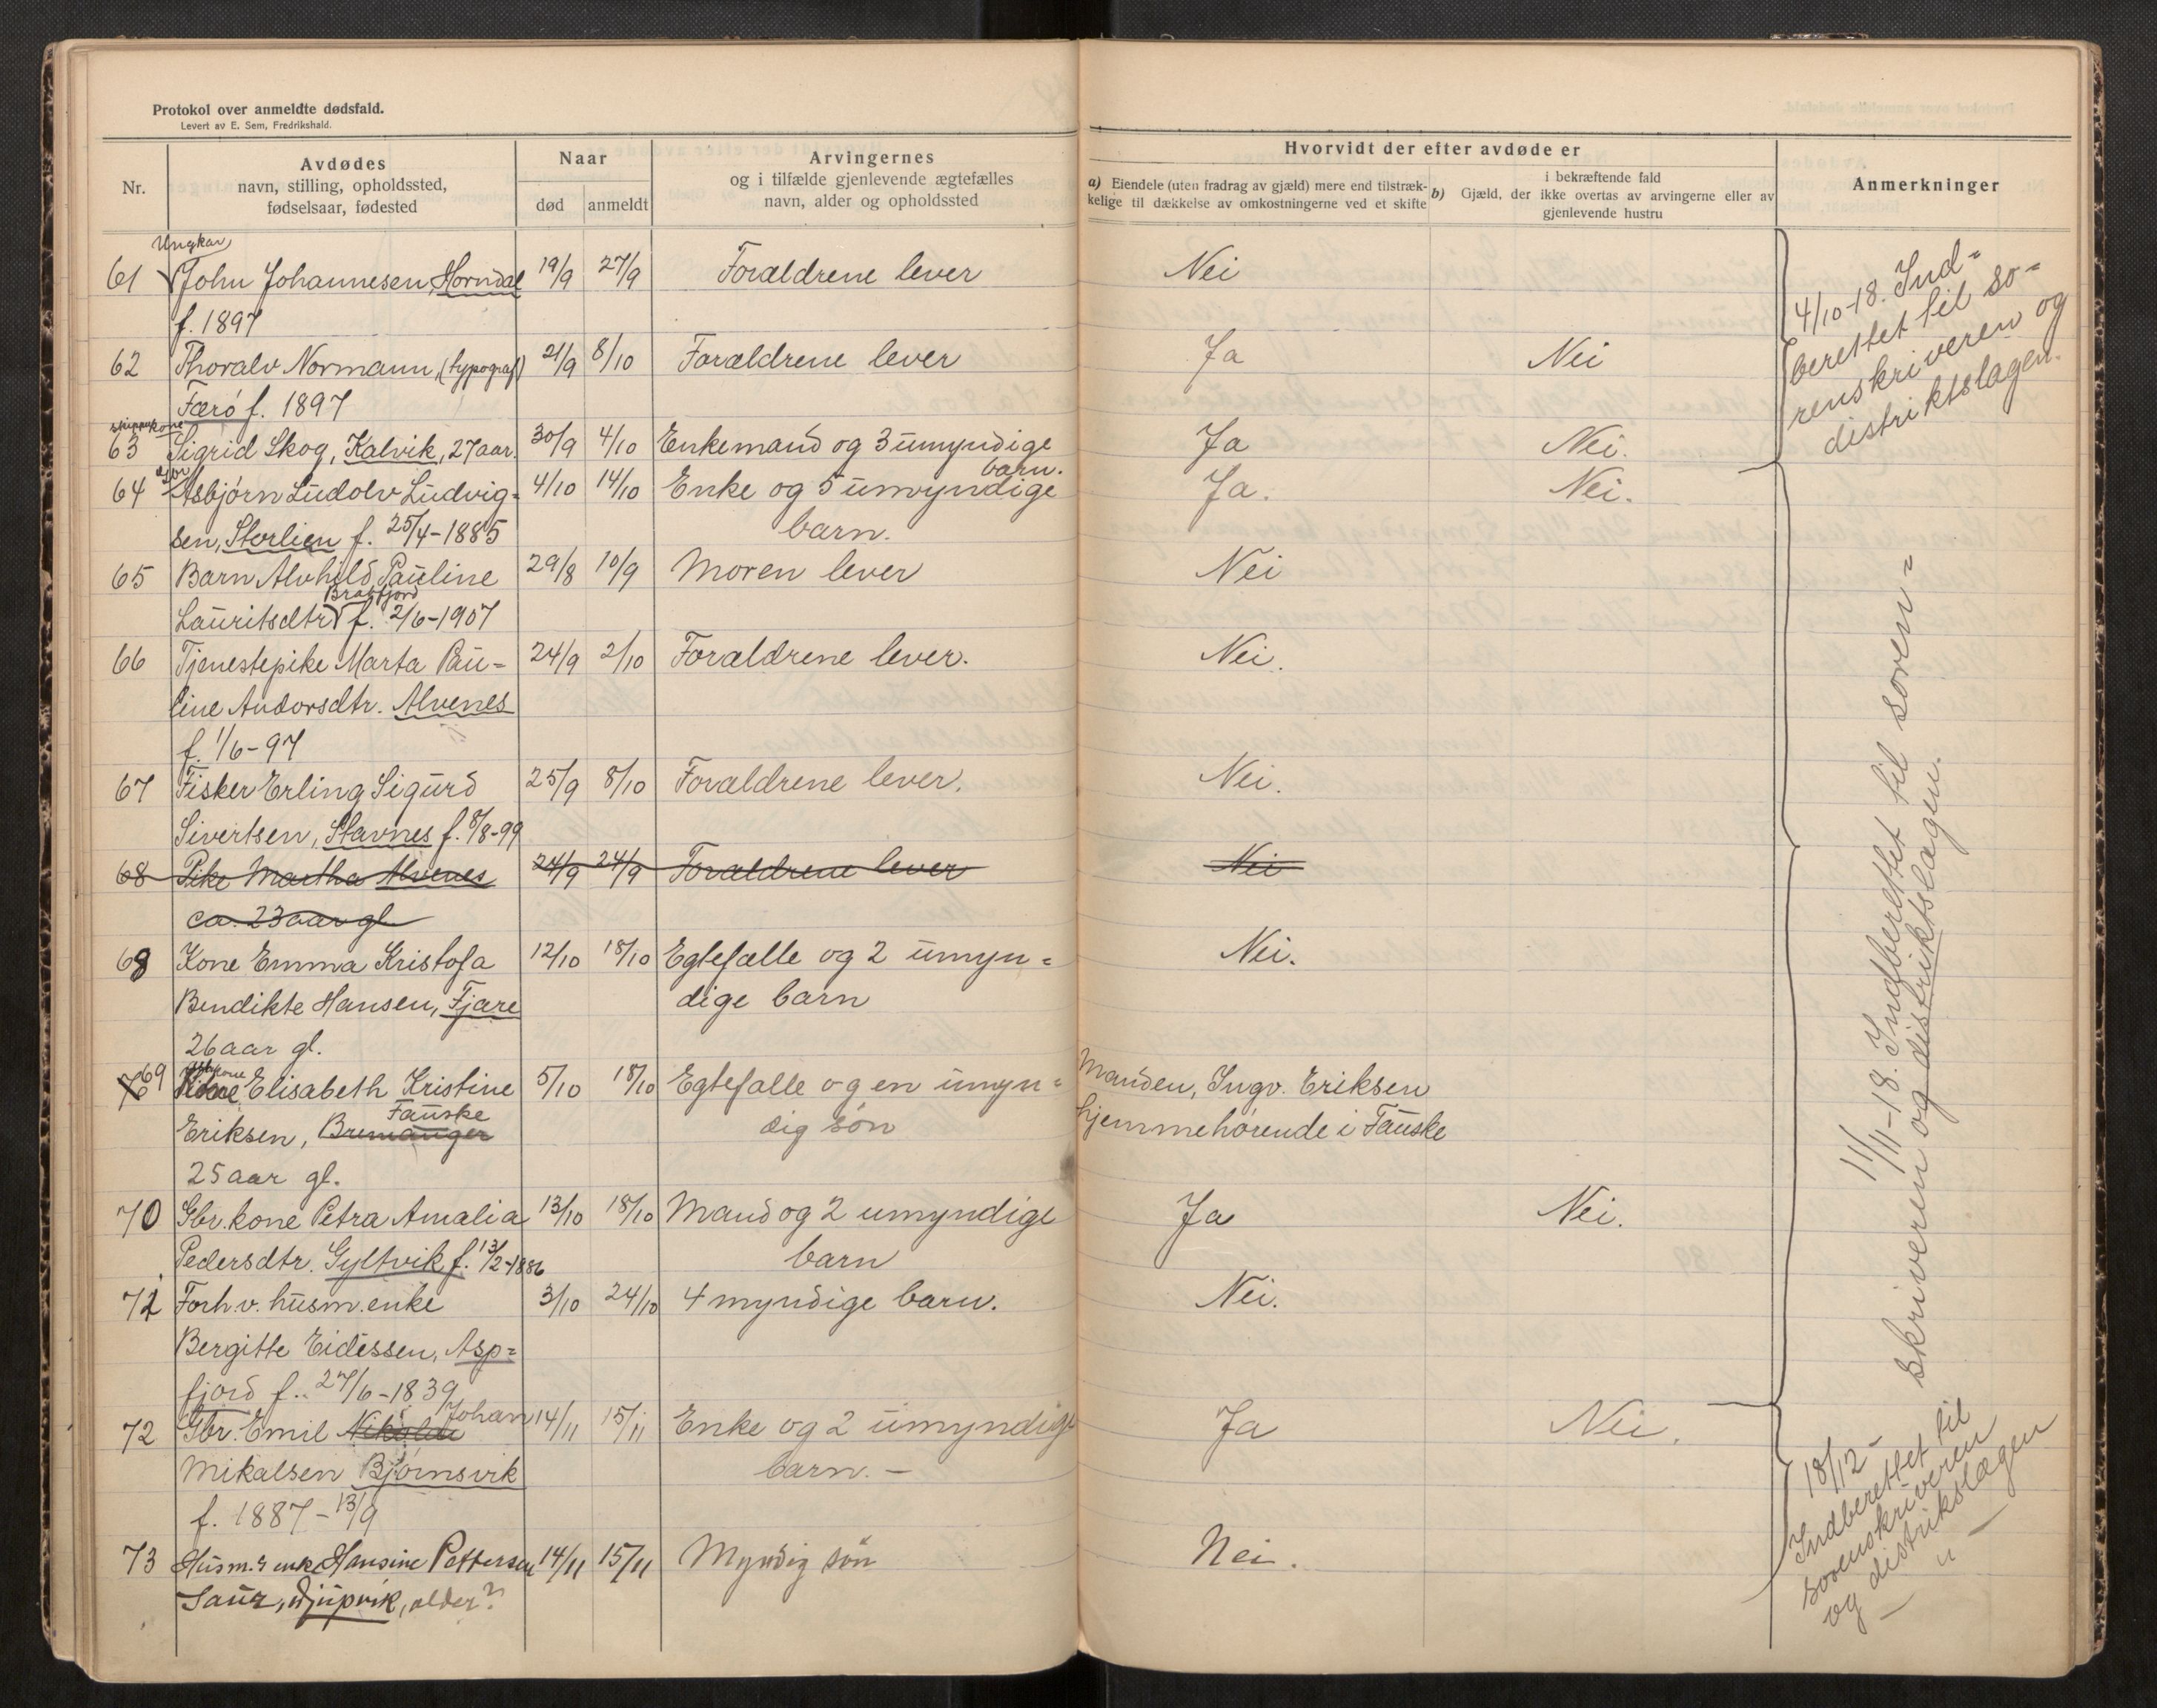 Protokol over anmeldte dødsfald.
Levert av E. Sem, Fredrikshald.
Nr.
Avdødes
navn, stilling, opholdssted,
fødselsaar, fødested
Naar
død
anmeldt
Arvingernes
og i tilfælde gjenlevende ægtefælles
navn, alder og opholdssted
Hvorvidt der efter avdøde er
a) Eiendele (uten fradrag av gjæld) mere end tilstræk-
kelige til dækkelse av omkostningerne ved et skifte
i bekræftende fald
b) Gjæld, der ikke overtas av arvingerne eller av
gjenlevende hustru
Anmerkninger
Ungkar
61 John Johannesen, Horndal 19/9 27/9 Forældrene lever Nei
f. 1897
62 Thoralv Normann, (typograf) 21/9 8/10 Forældrene lever Ja Nei
Færö f. 1897
skipperkone
63 Sigrid Skog, Kalvik, 27 aar. 30/9 4/10 Enkemand og 3 umyndige Ja Nei.
barn.
64 Asbjørn Ludolv Ludvig= 4/10 14/10 Enke og 5 umyndige Ja. Nei.
sen, Storlien f. 25/4-1885 barn.
65 Barn Alvhild Pauline 29/8 10/9 Moren lever Nei
Lauritsdtr f. 2/6-1907
66 Tjenestepike Marta Pau= 24/9 2/10 Forældrene lever. Nei.
line Andorsdtr. Alvenes
f. 1/6-97
67 Fisker Erling Sigurd 25/9 8/10 Forældrene lever. Nei.
Sivertsen, Stavnes f. 8/8-99
68 Pike Martha Alvenes 24/9 24/9 Forældrene lever Nei
ca. 23 aar gl
68 Kone Emma Kristofa 12/10 18/10 Egtefælle og 2 umyn= Nei.
Bendikte Hansen, Fjære dige barn
26 aar gl.
69 Elisabeth Kristine 5/10 18/10 Egtefælle og en umyn= Manden, Ingv. Eriksen
Fauske
Eriksen, Bremanger dig søn hjemmehørende i Fauske
25 aar gl.
70 Gbr. kone Petra Amalia 13/10 18/10 Mand og 2 umyndige Ja Nei.
Pedersdtr. Gyltvik f. 13/2-1886 barn
71 Forh.v. husm. enke 3/10 24/10 4 myndige barn. Nei.
Bergitte Eidessen, Asp=
fjord f. 27/6-1839
Johan
72 Gbr. Emil Nikolai 14/11 15/11 Enke og 2 umyndige Ja Nei.
Mikalsen Bjørnsvik barn. -
f. 1887 - 13/9
73 Husm.s enke Hansine Pettersen 14/11 15/11 Myndig søn Nei.
Saur, Djupvik, alder?
4/10-18. Ind=
berettet til so=
renskriveren og
distriktslægen.
11/11-18. Indberettet til soren=
skriveren og distriktslægen.
18/12 -
Indberettet til
sorenskriveren
og distriktslægen
— " —